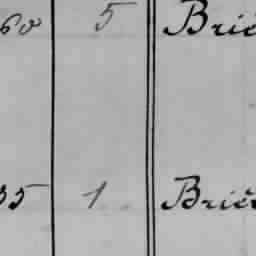 60 5 Brie
35 1 Brie